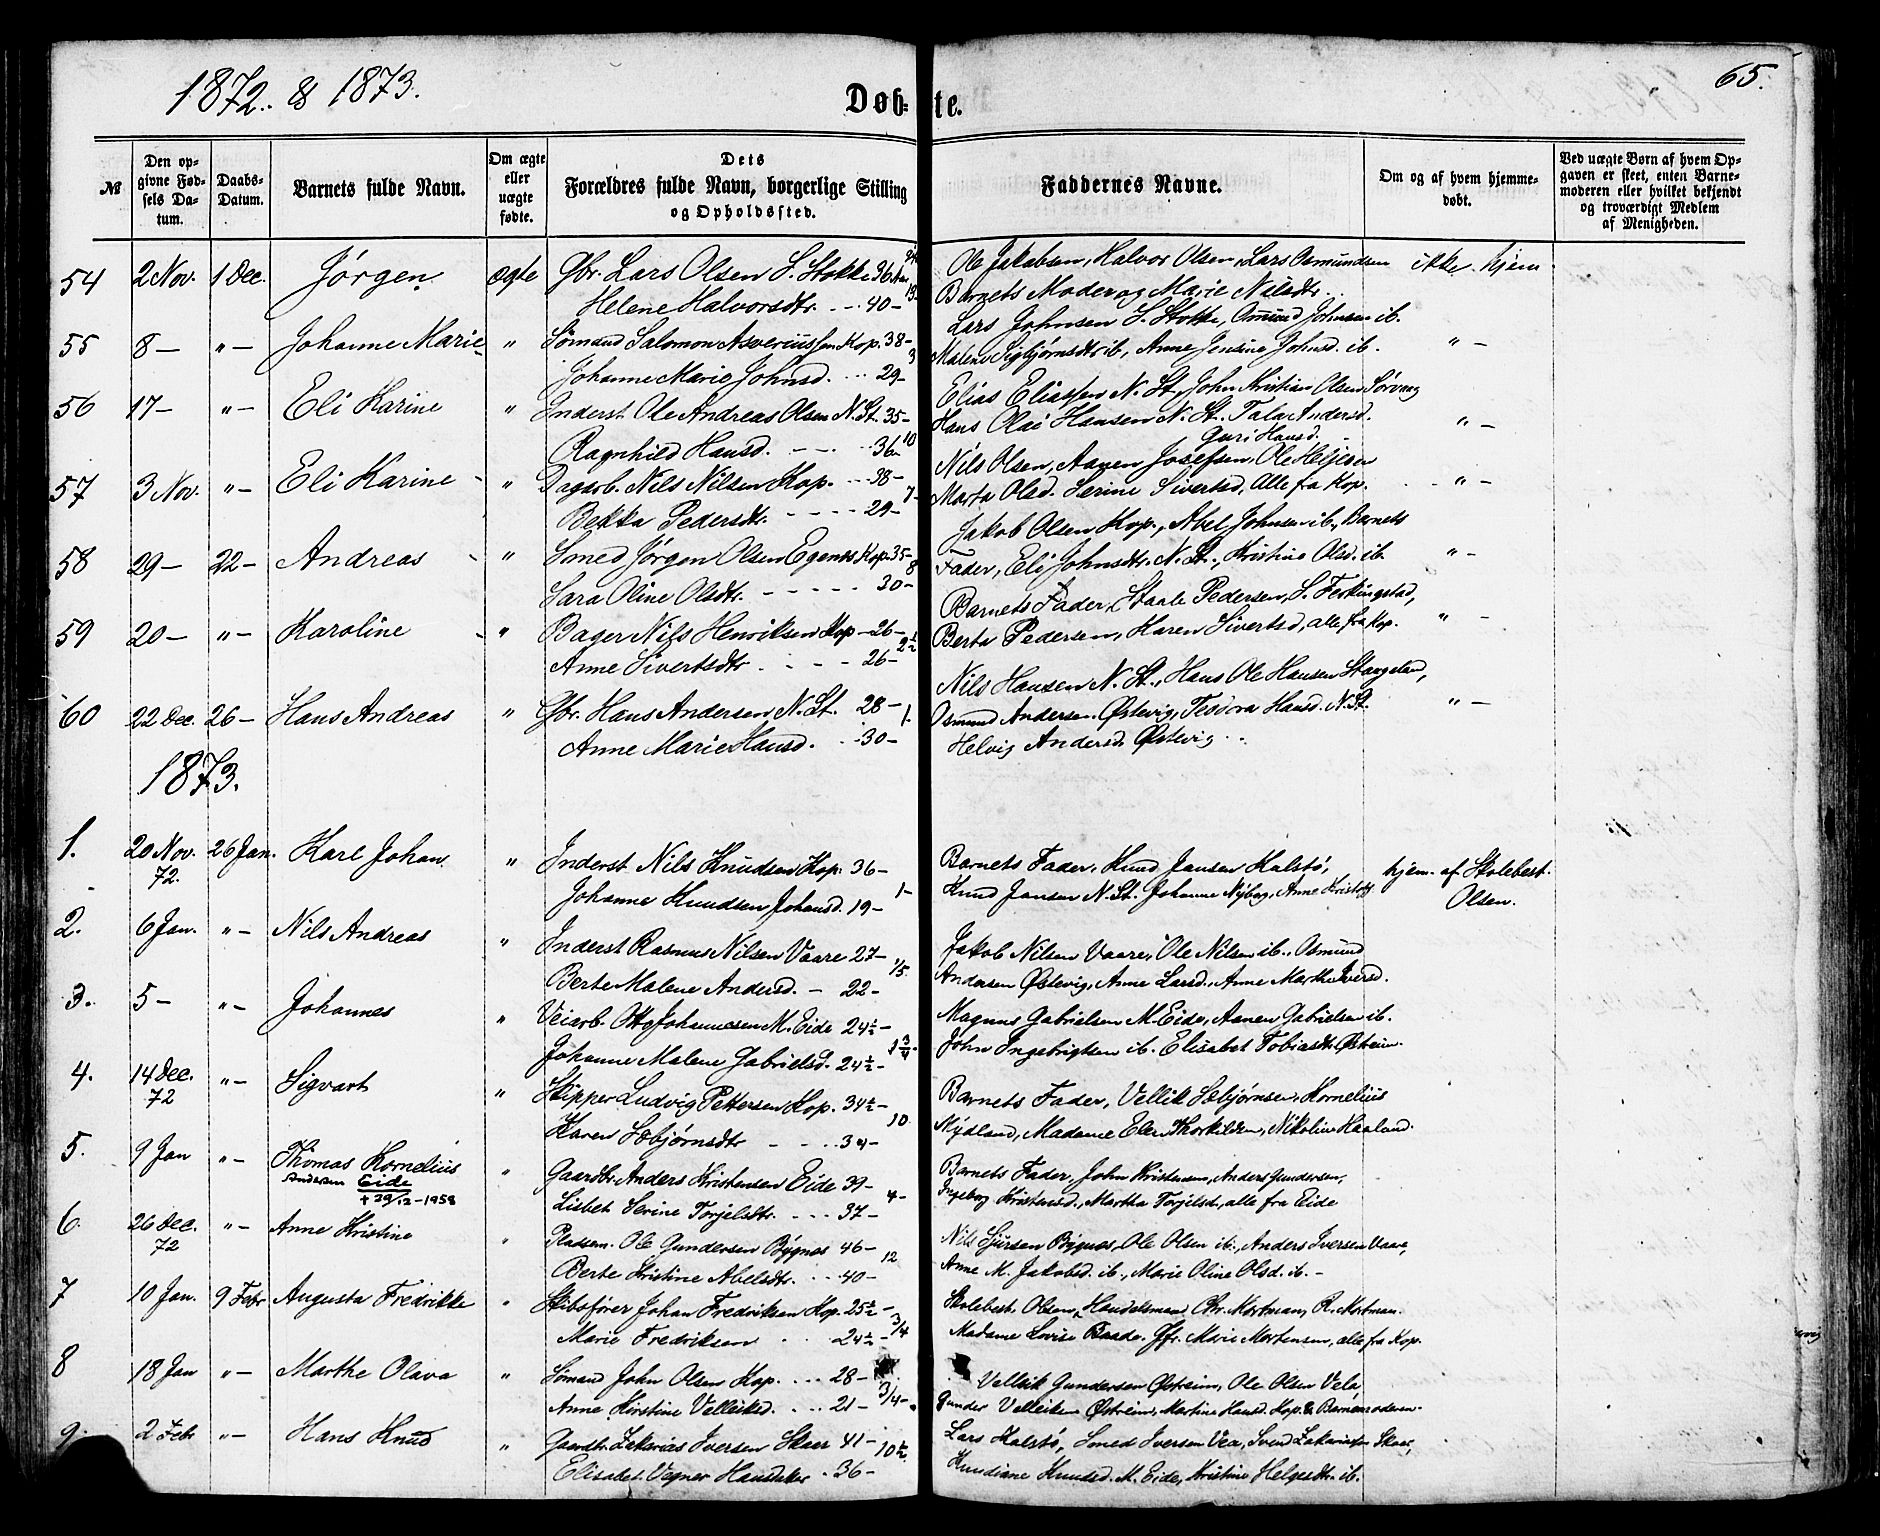 1872. & 1873.
Døbte.
65.
№
Den opgivne Fødsels Datum.
Daabs-Datum.
Barnets fulde Navn.
Om ægte eller uægte fødte.
Dets Forældres fulde Navn, borgerlige Stilling og Opholdssted.
Faddernes Navne.
Om og af hvem hjemmedøbt.
Ved uægte Børn af hvem Opgaven er skeet, enten Barnemoderen eller hvilket bekjendt og troværdigt Medlem af Menigheden.
54 2 Nov. 1 Dec. Jørgen ægte Gbr. Lars Olsen S. Stokke 36 Aar Ole Jakobsen, Halvor Olsen, Lars Osmundsen ikke hjem
Helene Halvorsdtr. 40 - Barnets Moder og Marie Nilsdtr.
Lars Johnsen S. Stokke, Osmund Johnsen ib.
55 8 - " - Johanne Marie " Sømand Salomon Asveriussen Kop. 38 - 3 Malene Sigbjørnsdtr ib, Anne Jensine Johnsd. ib. " -
Johanne Marie Johnsd. 29 -
Elias Eliassen N. St., John Kristian Olsen Sørvaag
56 17 - " - Eli Karine " Inderst. Ole Andreas Olsen N. St. 35 - Hans Olai Hansen N. St. Tala Andersd. " -
Ragnhild Hansd. 36 10 Guri Hansd.
Nils Olsen, Aanen Josefsen, Ole Heljesen
57 3 Nov. " - Eli Karine " Dagarb. Nils Nilsen Kop. 38 - 7 - Marta Olsd. Serine Sivertsd, Alle fra Kop. " -
Bekka Pedersdtr. 29 -
Jakob Olsen Kop., Abel Johnsen ib., Barnets
58 29 - 22 - Andreas " Smed Jørgen Olsen Egenes Kop. 35 - 8 Fader, Eli Johnsdtr. N. St., Kristine Olsd. ib. " -
Sara Oline Olsdtr. 30 -
Barnets Fader, Staale Pedersen, S. Ferkingstad,
59 20 - " - Karoline " Bager Nils Henriksen Kop - 26 - 2½ Berta Pedersen, Karen Sivertsd, alle fra Kop. " -
Anne Sivertsdtr. 26 -
Nils Hansen N. St., Hans Ole Hansen Stangeland,
60 22 Dec. 26 - Hans Andreas " Gbr. Hans Andersen N. St. 28 - 1. Osmund Andersen Østevig, Teodora Hansd. N. St. " -
Anne Marie Hansd. 30 - Helvig Andersd. Østevig
1873.
1. 20 Nov. 72. 26 Jan. Karl Johan " Inderst. Nils Knudsen Kop. 36 - Barnets Fader, Knud Jansen Kalstø, hjem. af Skolebest.
Johanne Knudsen Johansd. 19 - 1 - Knud Jansen N. St. Johanne Nyborg, Anne Olsen.
2. 6 Jan. " - Nils Andreas " Inderst Rasmus Nilsen Vaare 27 - 1/5. Jakob Nilsen Vaare, Ole Nilsen ib., Osmund
Berte Malene Andersd. - 22 - Andersen Østevig, Anne Larsd., Anne Marthe Iversd.
3. 5 - " - Johannes " Veiarb. Otto Johannesen M. Eide 24½ - Magnus Gabrielsen M. Eide, Aanen Gabrielsen ib.
Johanne Malene Gabrielsd. 24½ - 1¾. John Ingebrigtsen ib. Elisabet Tobiasdtr. Østrem.
4. 14 Dec. 72 " - Sigvart " Skipper Ludvig Pettersen Kop. 34½ - 10 Barnets Fader, Vellik Sebjørnsen, Kornelius
Karen Sebjørnsdtr 34 - Kydland, Madame Elen Thorkildsen, Nikoline Haaland.
5. 9 Jan " - Thomas Kornelius " Gaardbr. Anders Kristensen Eide 39 - Barnets Fader, John Kristensen, Anders Gundersen,
Andersen Eide
+ 29/12 - 1958
Lisbet Serine Torjelsdtr. 37 - 4 - Ingeborg Kristensd., Martha Torjelsd., alle fra Eide
6. 26 Dec. 72 " - Anne Kristine " Pladsm. Ole Gundersen Bygnes 46 - 12 Nils Sjursen Bygnes, Ole Olsen ib., Anders Iversen Vaare,
Berte Kristine Abelsdtr. 40 - Anne M. Jakobsd. ib., Marie Oline Olsd. ib. -
7 10 Jan. 9 Febr Augusta Fredrikke " Skibsfører Johan Fredriksen Kop. 25½ - 3/4 Skolebest. Olsen, Handelsmand Chr. Mortman, R. Mortman.
Marie Fredriksen 24½ - Madame Lovise Baade. Jfr. Marie Mortensen, alle fra Kop.
8 18 Jan " - Marthe Olava " Sømand John Olsen Kop. 28 - Vellik Gundersen Østreim, Ole Olsen Vela,
Anne Kirstine Velliksd. 21 - 3/4 - Gunder Velliksen Østreim, Martine Hansd. Kop. & Barnemoderen.
9. 2 Febr " - Hans Knud " Gaardbr. Zakarias Iversen Skaar 41 - 10½ Lars Kalstø, Smed Iversen Vea, Svend Zakariassen Skaar,
Elisabet Vegner Hansdtr 36 - Knudiane Knudsd. M. Eide, Kristine Helgesdtr. ib.